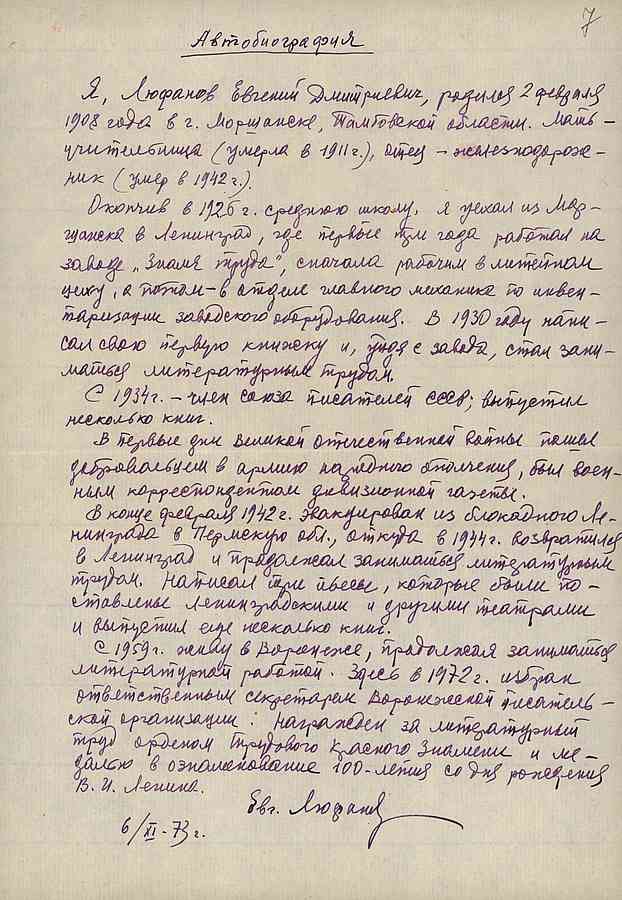 7
Автобиография
Я, Люфанов Евгений Дмитриевич, родился 2 февраля
1908 года в г. Моршанске, Тамбовской области. Мать –
учительница (умерла в 1911 г.), отец – железнодорож-
ник (умер в 1942 г.).
Окончив в 1926 г. среднюю школу, я уехал из Мор-
шанска в Ленинград, где первые три года работал на
заводе „Знамя труда", сначала рабочим в литейном
цеху, а потом – в отделе главного механика по инвен-
таризации заводского оборудования. В 1930 году напи-
сал свою первую книжку и, уйдя с завода, стал зани-
маться литературным трудом.
С 1934 г. – член союза писателей СССР; выпустил
несколько книг.
В первые дни Великой отечественной войны пошел
добровольцем в армию народного ополчения, был воен-
ным корреспондентом дивизионной газеты.
В конце февраля 1942 г. эвакуирован из блокадного Ле-
нинграда в Пермскую обл., откуда в 1944 г. возвратился
в Ленинград и продолжал заниматься литературным
трудом. Написал три пьесы, которые были по-
ставлены Ленинградскими и другими театрами
и выпустил еще несколько книг.
С 1959 г. живу в Воронеже, продолжая заниматься
литературной работой. Здесь в 1972 г. избран
ответственным секретарем Воронежской писатель-
ской организации. Награжден за литературный
труд орденом Трудового Красного Знамени и ме-
далью в ознаменование 100-летия со дня рождения
В. И. Ленина.
Евг. Люфанов
6/XI-73 г.